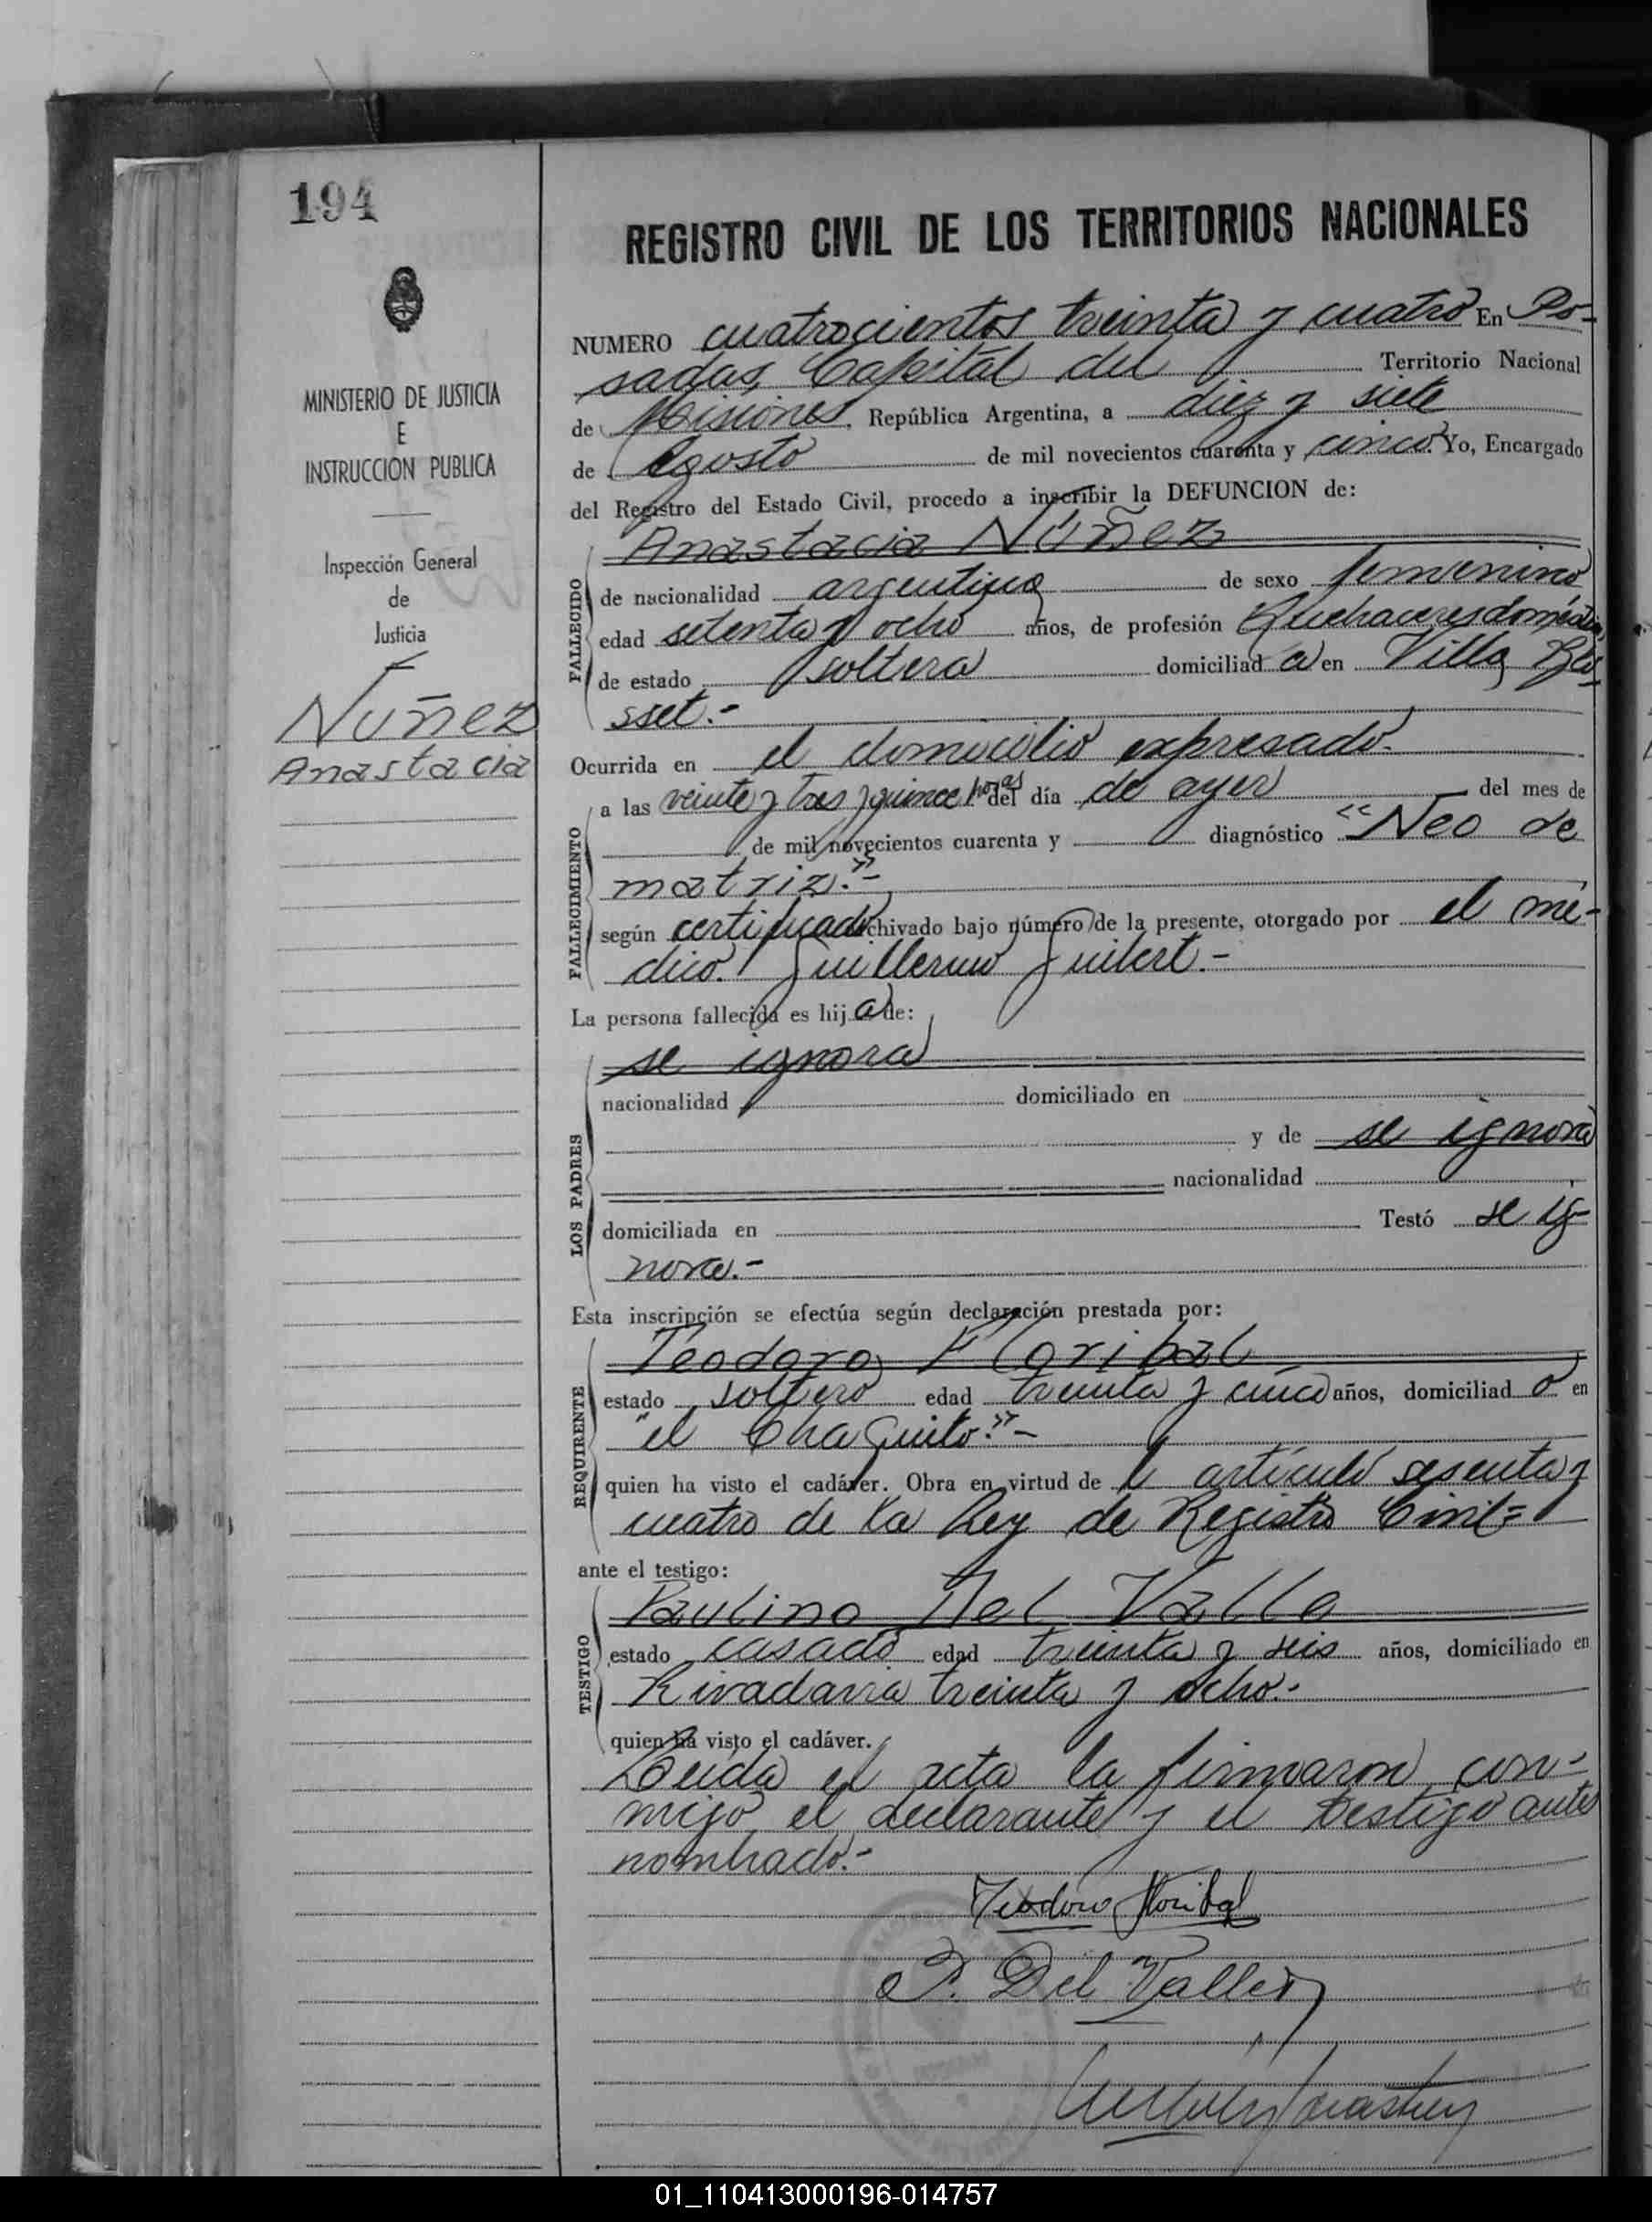 194
REGISTRO CIVIL DE LOS TERRITORIOS NACIONALES
MINISTERIO DE JUSTICIA
E
INSTRUCCION PUBLICA
Inspección General
de
Justicia
Nuñez
Anastacia
NUMERO cuatrocientos treinta y cuatro En Po-
sadas, Capital del Territorio Nacional
de Misiones, República Argentina, a diez y siete
de Agosto de mil novecientos cuarenta y cinco. Yo, Encargado
del Registro del Estado Civil, procedo a inscribir la DEFUNCION de:
Anastacia Núñez
FALLECIDO
de nacionalidad argentina de sexo femenino
edad setenta y ocho años, de profesión Quehaceres domésticos
de estado soltera domiciliad a en Villa Bla-
sset.-
Ocurrida en el domicilio expresado.
FALLECIMIENTO
a las veinte y tres y quince horas del día de ayer del mes de
de mil novecientos cuarenta y diagnóstico "Neo de
matriz."-
según certificado archivado bajo número de la presente, otorgado por el mé-
dico. Guillermo Guibert.-
La persona fallecida es hij a de:
LOS PADRES
se ignora
nacionalidad domiciliado en
y de se ignora
nacionalidad
domiciliada en Testó se ig-
nora.-
Esta inscripción se efectúa según declaración prestada por:
REQUIRENTE
Teodoro Floribal
estado soltero edad treinta y cinco años, domiciliad o en
"el Chaquito."-
quien ha visto el cadáver. Obra en virtud de l artículo sesenta y
cuatro de la Ley de Registro Civil=
ante el testigo:
TESTIGO
Paulino Del Valle
estado casado edad treinta y seis años, domiciliado en
Rivadavia treinta y ocho.-
quien ha visto el cadáver.
Leída el acta la firmaron con-
migo, el declarante y el testigo antes
nombrado.-
Teodoro Floribal
P. Del Valle
01_110413000196-014757